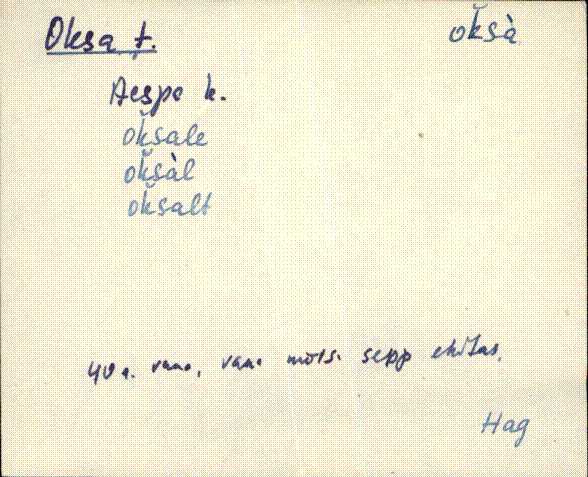 Oksa t.
ok̆sà
Aespa k.
ok̆sale
ok̆sàl
ok̆salt
40 a. vana, vana mõis. sepp ehitas.
Hag